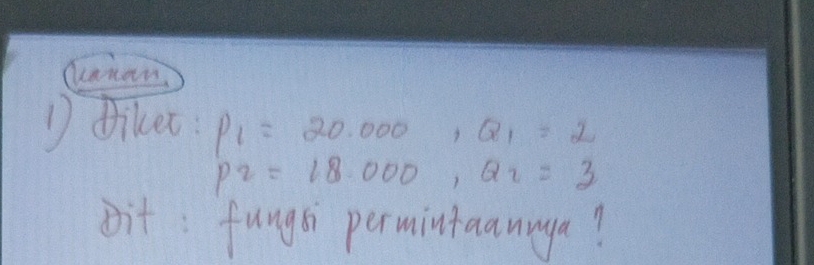 Kanan.
1) Diket : P1 = 20.000 , Q1 = 2
P2 = 18.000 , Q2 = 3
Dit : fungsi permintaannya ?